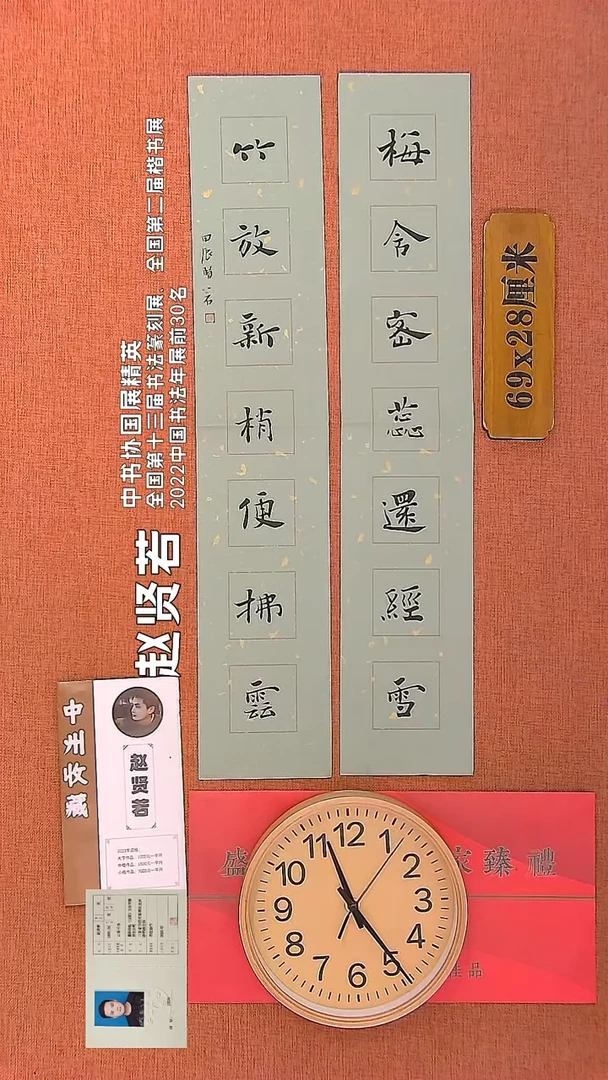 梅含密蕊還經雪
竹放新梢便拂雲
69x28厘米
中书协国展精英
全国第十三届书法篆刻展、全国第二届楷书展
2022中国书法年展前30名
赵贤若
赵贤若
盛
家臻禮
佳品
12
1
2
3
4
5
6
7
8
9
10
11